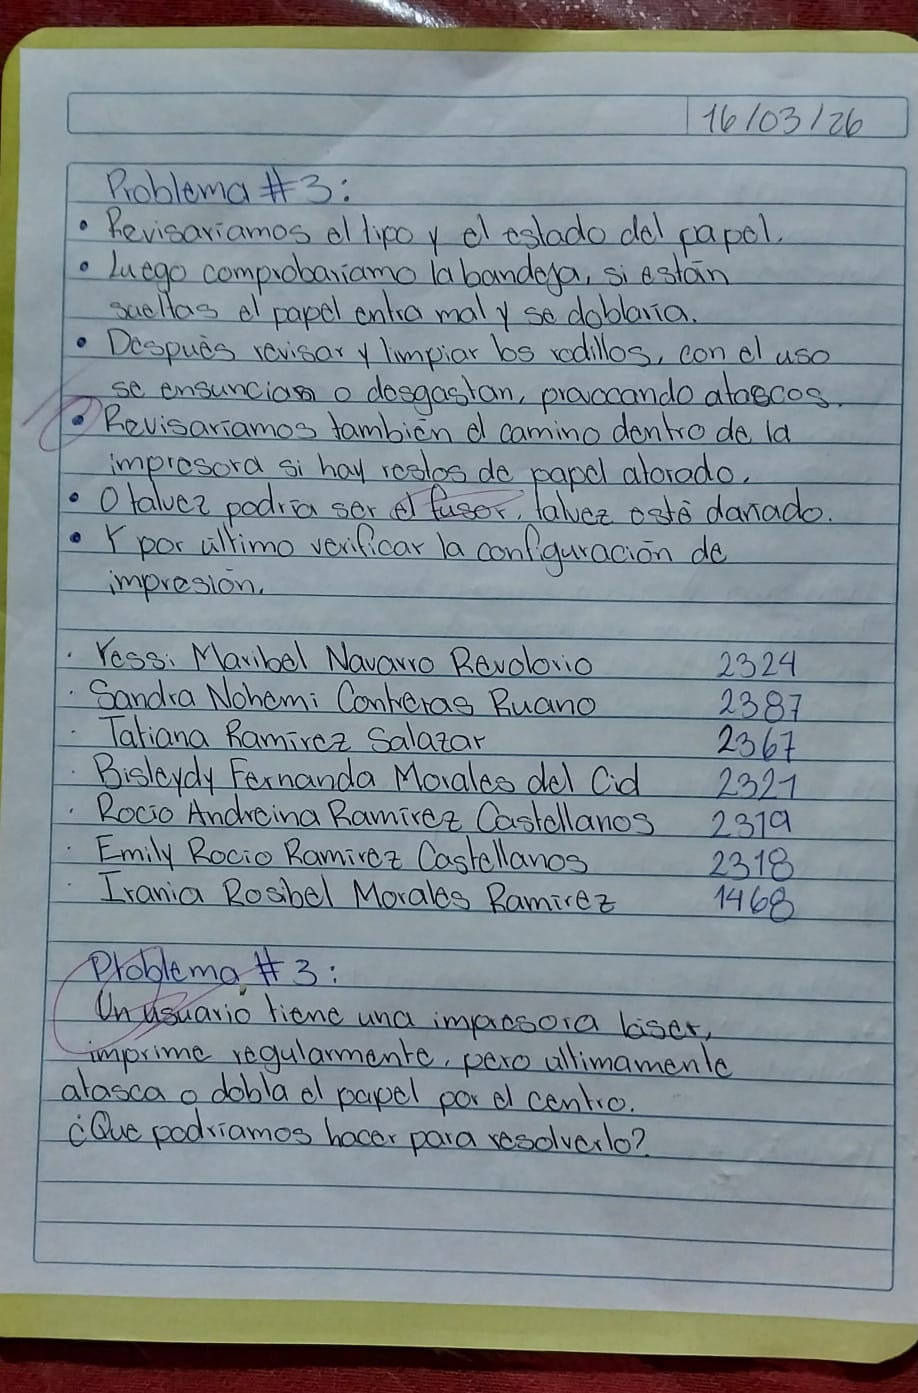 16/03/26
Problema #3:
• Revisariamos el tipo y el estado del papel.
• Luego comprobariamo la bandeja, si están
sueltas el papel entra mal y se doblaria.
• Después revisar y limpiar los rodillos, con el uso
se ensuncian o desgastan, provocando atascos.
• Revisaríamos también el camino dentro de la
impresora si hay restos de papel atorado.
• O talvez podría ser el fusor, talvez esté dañado.
• Y por último verificar la configuración de
impresión.
· Yessi Maribel Navarro Revolorio 2324
· Sandra Nohemi Contreras Ruano 2387
· Tatiana Ramírez Salazar 2367
· Bisleydy Fernanda Morales del Cid 2321
· Rocio Andreina Ramírez Castellanos 2319
· Emily Rocio Ramirez Castellanos 2318
· Irania Rosibel Morales Ramírez 1468
Problema #3:
Un usuario tiene una impresora láser,
imprime regularmente, pero ultimamente
atasca o dobla el papel por el centro.
¿Que podríamos hacer para resolverlo?